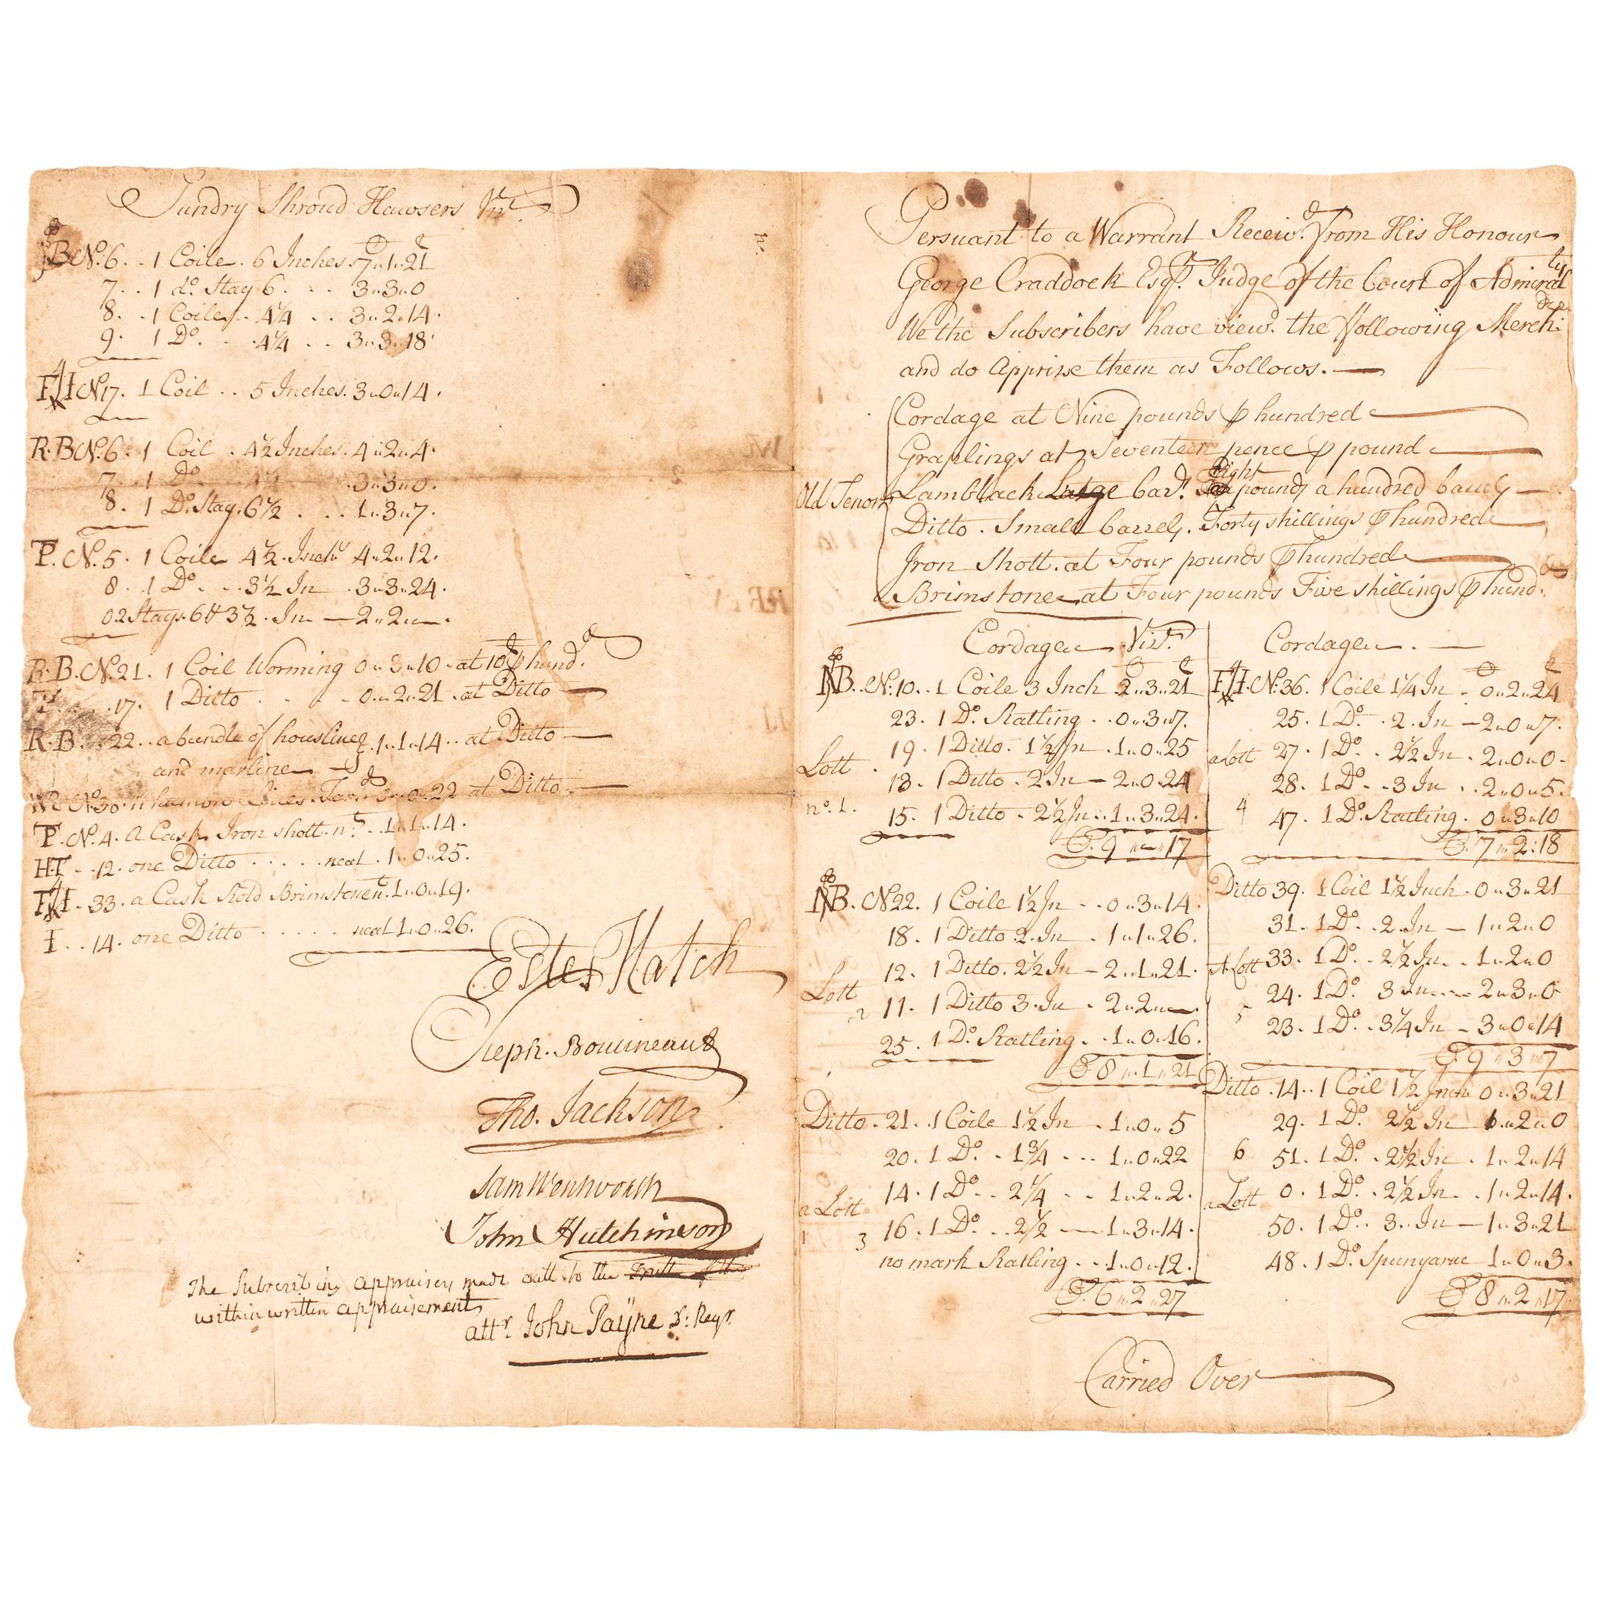 Sundry Shroud Hawsers Vizt.
C q
B No. 6 . . 1 Coile . 6 Inches . 7 " 1 " 21
7 . . 1 do. Stay 6 . . . 3 " 3 " 0
8 . . 1 Coile . . 4 1/4 . . 3 " 2 " 14 .
9 . 1 Do. . . 4 1/4 . . 3 " 3 " 18
4
FH No 17 . 1 Coil . . 5 Inches . 3 " 0 " 14 .
R . B No. 6 . 1 Coil . 4 1/2 Inches . 4 " 2 " 4 .
7 . 1 Do. . 4 1/2 . . 3 " 3 " 0 .
8 . 1 Do. Stay . 6 1/2 . . . 1 " 3 " 7 .
T . No. 5 . 1 Coile 4 1/2 . Inchs 4 " 2 " 12 .
8 . 1 Do. . . 3 1/2 In . 3 " 3 " 24 .
0 2 Stays . 6 & 3 1/2 . In — 2 " 2 " — .
R . B . No. 21 . 1 Coil Worming 0 " 3 " 10 . at 10£ ⅌ hundd.
17 . 1 Ditto . . . 0 " 2 " 21 . at Ditto —
R . B . . 22 . . a bundle of houslines . 1 " 1 " 14 . . at Ditto —
and marline —
No. 30 . 11 hamoro Lines . Tard. 3 " 0 " 22 at Ditto . —
T . No. 4 . a Cask Iron shott . nt. . . 1 " 1 " 14 .
HT . . 12 . one Ditto . . . . . neat . 1 " 0 " 25 .
4
FH . 33 . a Cask Rold Brimstone nt. 1 " 0 " 19 .
I . . 14 . one Ditto . . . . . neat 1 " 0 " 26 .
Estes Hatch
Steph. Boutineau
Tho. Jackson
Sam Wentworth
John Hutchinson
The Subscribing appraisers made oath to the truth of the
within written appraisement
attr. John Payne D: Regr.
Persuant to a Warrant Receivd. from His Honour
George Craddock Esqr. Judge of the Court of Admiralty
We the Subscribers have viewd. the following Merchdze:
and do apprize them as Follows. —
Cordage at Nine pounds ⅌ hundred
Graplings at Seventeen pence ⅌ pound
Old Tenor Lamblack Large barl. Eight pounds a hundred barrels —
Ditto . Small barrels . Forty shillings ⅌ hundred
Iron Shott . at Four pounds ⅌ hundred
Brimstone at Four pounds Five shillings ⅌ hundd.
Cordage Vizt.
C q
B . No. 10 . . 1 Coile 3 Inch 2 " 3 " 21
23 . 1 Do. Ratling . . 0 " 3 " 7 .
Lott . 19 . 1 Ditto . 1 1/2 In . 1 " 0 " 25
13 . 1 Ditto . 2 In — 2 " 0 " 24
no. 1 . 15 . 1 Ditto . 2 1/2 In . . 1 " 3 " 24 .
C . 9 " — " 17
B . No 22 . 1 Coile 1 1/2 In . . 0 " 3 " 14 .
18 . 1 Ditto 2 . In . 1 " 1 " 26 .
12 . 1 Ditto . 2 1/2 In — 2 " 1 " 21 .
Lott 2 11 . 1 Ditto 3 . In . 2 " 2 " — .
25 . 1 Do. Ratling . . 1 " 0 " 16 .
C 8 " 1 " 21
Ditto . 21 . . 1 Coile 1 1/2 In . 1 " 0 " 5
20 . 1 Do. . 1 3/4 . . . 1 " 0 " 22
14 . 1 Do. . . 2 1/4 . . 1 " 2 " 2 .
a Lott 3 16 . 1 Do. . . 2 1/2 — 1 " 3 " 14 .
no mark Ratling . . 1 " 0 " 12 .
C . 6 " 2 " 27
Cordage . —
C q
4
FH . No. 36 . 1 Coile 1 1/4 In . 0 " 2 " 24
25 . 1 Do. . 2 . In — 2 " 0 " 7 .
a Lott 27 . 1 Do. . . 2 1/2 In . 2 " 0 " 0 .
28 . 1 Do. . 3 In . . 2 " 0 " 5 .
4 47 . 1 Do. Ratling . 0 " 3 " 10
C . 7 " 2 : 18
Ditto 39 . 1 Coil 1 1/2 Inch . 0 " 3 " 21
31 . 1 Do. . 2 . In — 1 " 2 " 0
A Lott 33 . 1 Do. . 2 1/2 In . . 1 " 2 " 0
24 . 1 Do. 3 In . . . 2 " 3 " 0
5 23 . 1 Do. . 3 1/4 In — 3 " 0 " 14
C . 9 " 3 " 7
Ditto . 14 . . 1 Coil 1 1/2 Inch 0 " 3 " 21
29 . 1 Do. 2 1/2 In . 1 " 2 " 0
6 51 . 1 Do. . 2 1/2 In . 1 " 2 " 14
a Lott 0 . 1 Do. . 2 1/2 In . . 1 " 2 " 14 .
50 . 1 Do. . 3 . In — 1 " 3 " 21
48 . 1 Do. Spunyarne 1 " 0 " 3 .
C 8 " 2 " 17
Carried Over